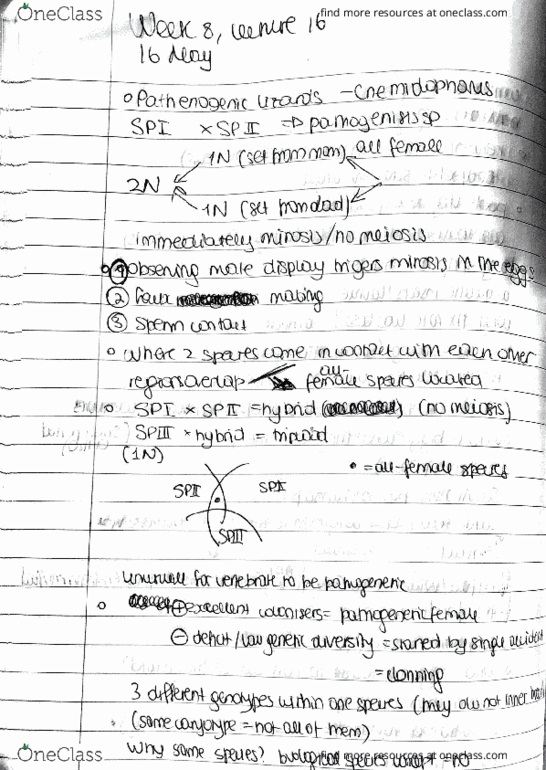 OneClass
find more resources at oneclass.com
Week 8, lecture 16
16 May
Pathenogenic lizards - Cnemidophorus
SPI × SPII ⇒ parthogenisis sp
1N (set from mom) all female
2N
1N (set from dad)
immediately mitosis/no meiosis
① observing male display trigers mitosis in the eggs
② faux mating
③ sperm contact
Where 2 species come in contact with each other
regions overlap all-female species located
SPI × SPII = hybrid (no meiosis)
SPIII × hybrid = triploid
(1N)
• = all-female species
SPI SPII
SPIII
unusual for vertebrate to be pathogenetic
⊕ excellent colonisers = pathogenetic female
⊖ deficit/low genetic diversity = started by single accident
= clonning
3 different genotypes within one species (they do not inner
(same caryotype = not all of them)
Why same species? biological species concept = no
OneClass
find more resources at oneclass.com